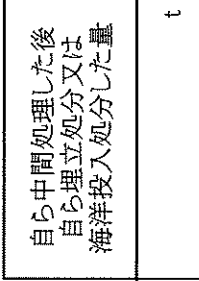 自ら中間処理した後
自ら埋立処分又は
海洋投入処分した量
t